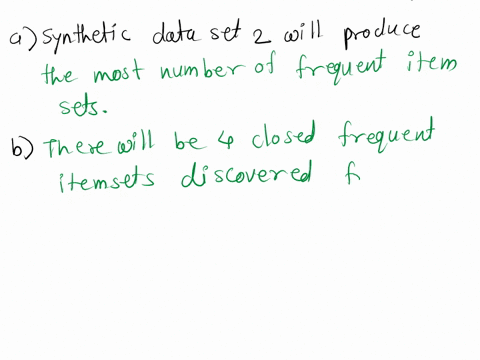 a) Synthetic data set 2 will produce
the most number of frequent item
sets.
b) There will be 4 closed frequent
itemsets discovered f